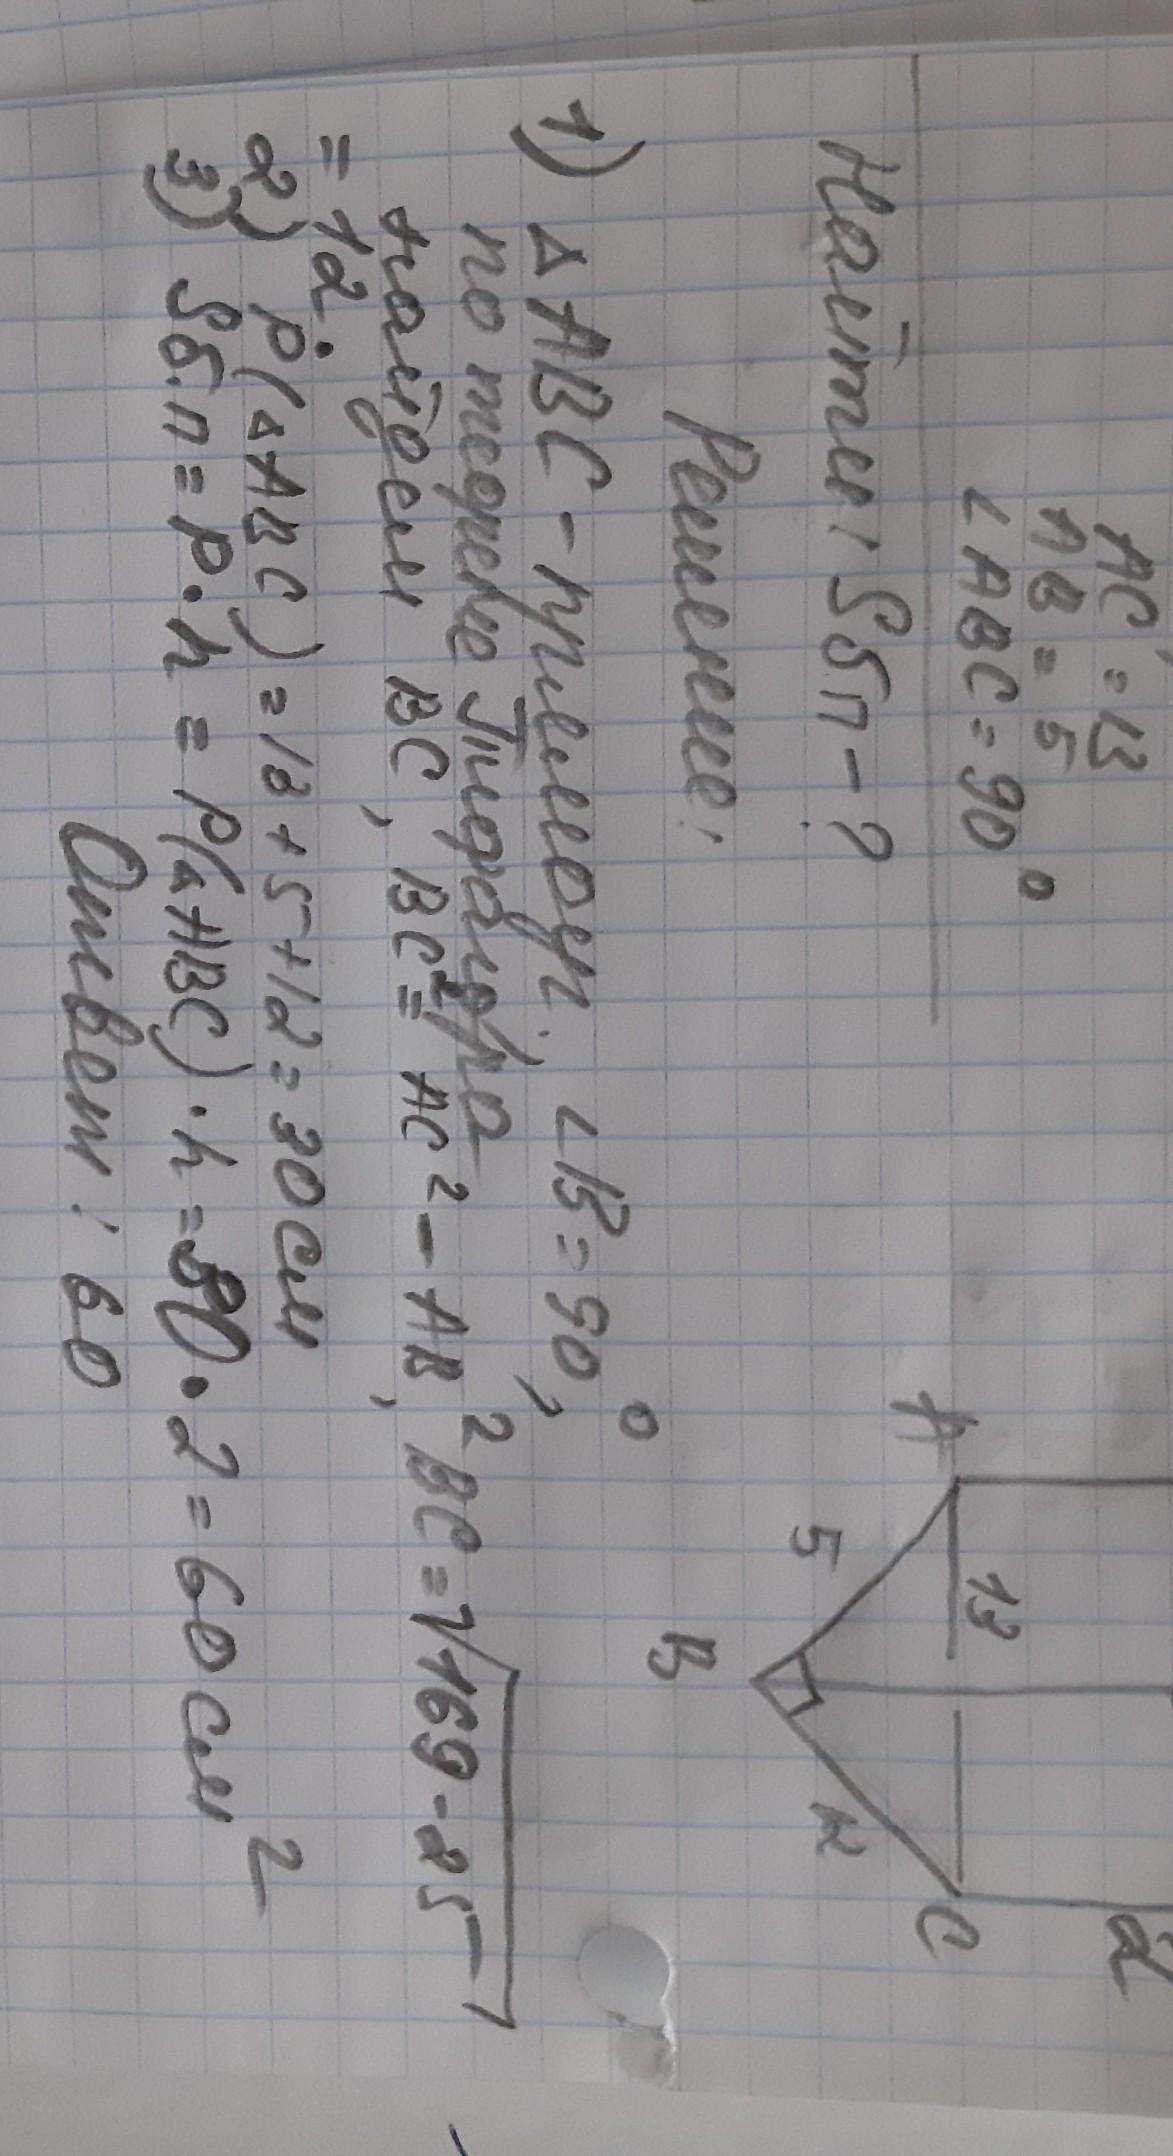 AC = 13
AB = 5
∠ABC = 90°
Найти: Sбп - ?
Решение:
A
13
C
2
5
12
B
1) ΔABC - прямоуг. ∠B = 90°,
по теореме Пифагора
найдем BC, BC² = AC² - AB², BC = √169-25
= 12.
2) P(ΔABC) = 13 + 5 + 12 = 30 см
3) Sб.п = P · h = P(ΔABC) · h = 30 · 2 = 60 см²
Ответ: 60